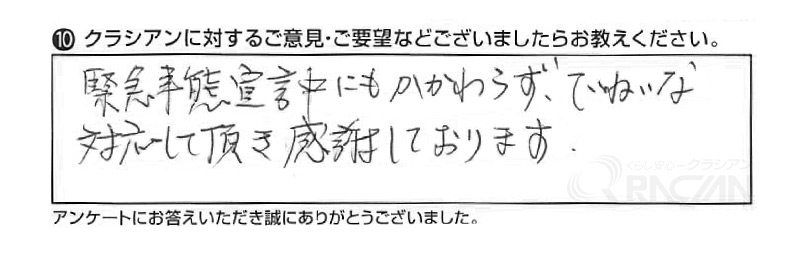 ⑩ クラシアンに対するご意見・ご要望などございましたらお教えください。
緊急事態宣言中にもかかわらず、ていねいな
対応して頂き感謝しております.
くらし安心クラシアン
QRACIAN
アンケートにお答えいただき誠にありがとうございました。